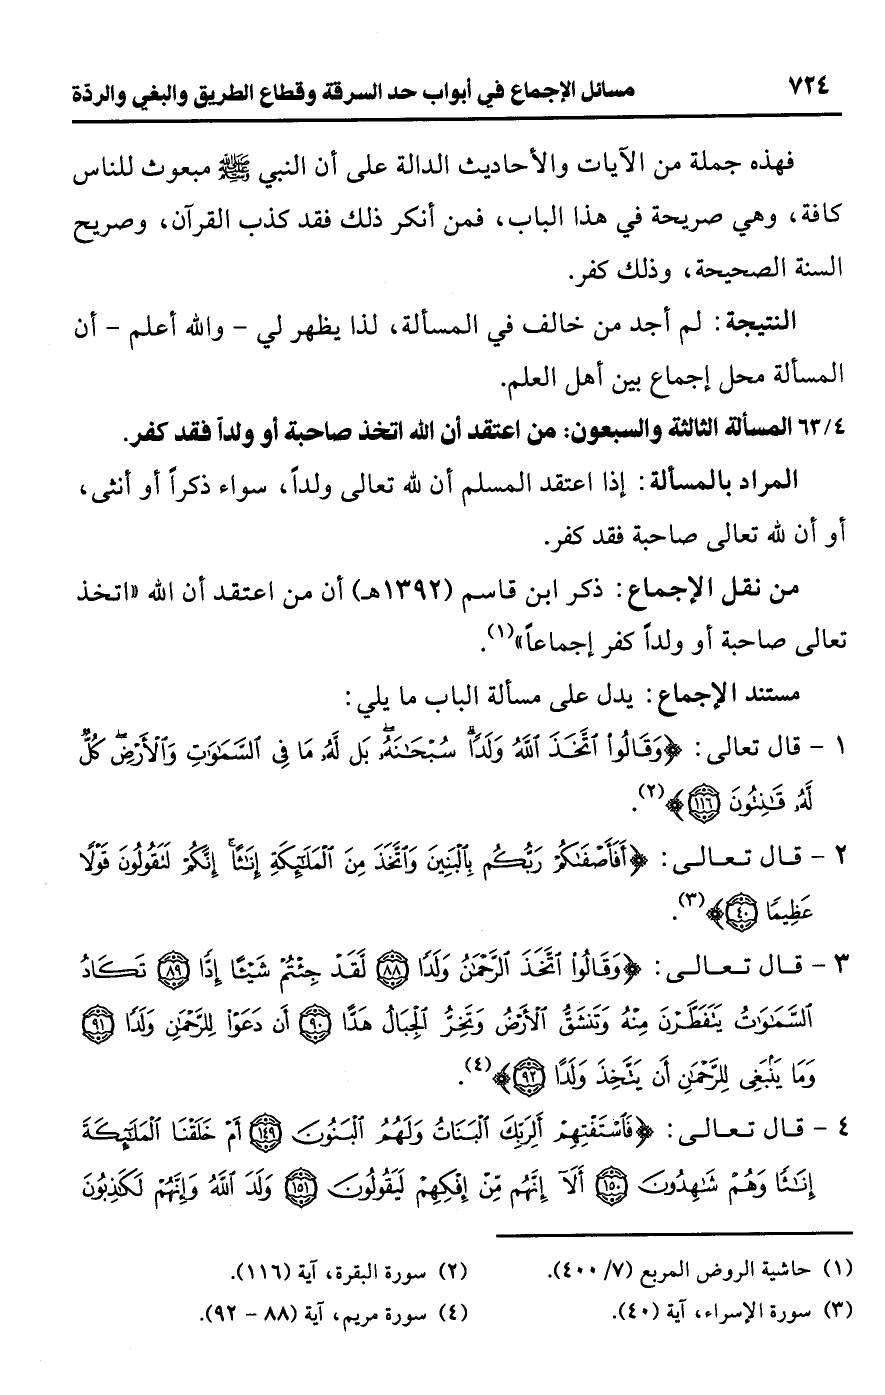 ٧٢٤ مسائل الإجماع في أبواب حد السرقة وقطاع الطريق والبغي والردّة
فهذه جملة من الآيات والأحاديث الدالة على أن النبي ﷺ مبعوث للناس
كافة، وهي صريحة في هذا الباب، فمن أنكر ذلك فقد كذب القرآن، وصريح
السنة الصحيحة، وذلك كفر.
النتيجة: لم أجد من خالف في المسألة، لذا يظهر لي - والله أعلم - أن
المسألة محل إجماع بين أهل العلم.
٦٣/٤ المسألة الثالثة والسبعون: من اعتقد أن الله اتخذ صاحبة أو ولداً فقد كفر.
المراد بالمسألة: إذا اعتقد المسلم أن لله تعالى ولداً، سواء ذكراً أو أنثى،
أو أن لله تعالى صاحبة فقد كفر.
من نقل الإجماع: ذكر ابن قاسم (١٣٩٢هـ) أن من اعتقد أن الله «اتخذ
تعالى صاحبة أو ولداً كفر إجماعاً»(١).
مستند الإجماع: يدل على مسألة الباب ما يلي:
١ - قال تعالى: ﴿وَقَالُوا۟ ٱتَّخَذَ ٱللَّهُ وَلَدًۭا ۗ سُبْحَـٰنَهُۥ ۖ بَل لَّهُۥ مَا فِى ٱلسَّمَـٰوَٰتِ وَٱلْأَرْضِ ۖ كُلٌّۭ
لَّهُۥ قَـٰنِتُونَ ١١٦﴾(٢).
٢ - قال تعالى: ﴿أَفَأَصْفَىٰكُمْ رَبُّكُم بِٱلْبَنِينَ وَٱتَّخَذَ مِنَ ٱلْمَلَـٰٓئِكَةِ إِنَـٰثًا ۚ إِنَّكُمْ لَتَقُولُونَ قَوْلًا
عَظِيمًۭا ٤٠﴾(٣).
٣ - قال تعالى: ﴿وَقَالُوا۟ ٱتَّخَذَ ٱلرَّحْمَـٰنُ وَلَدًۭا ٨٨ لَّقَدْ جِئْتُمْ شَيْـًٔا إِدًّۭا ٨٩ تَكَادُ
ٱلسَّمَـٰوَٰتُ يَتَفَطَّرْنَ مِنْهُ وَتَنشَقُّ ٱلْأَرْضُ وَتَخِرُّ ٱلْجِبَالُ هَدًّا ٩٠ أَن دَعَوْا۟ لِلرَّحْمَـٰنِ وَلَدًۭا ٩١
وَمَا يَنۢبَغِى لِلرَّحْمَـٰنِ أَن يَتَّخِذَ وَلَدًا ٩٢﴾(٤).
٤ - قال تعالى: ﴿فَٱسْتَفْتِهِمْ أَلِرَبِّكَ ٱلْبَنَاتُ وَلَهُمُ ٱلْبَنُونَ ١٤٩ أَمْ خَلَقْنَا ٱلْمَلَـٰٓئِكَةَ
إِنَـٰثًۭا وَهُمْ شَـٰهِدُونَ ١٥٠ أَلَآ إِنَّهُم مِّنْ إِفْكِهِمْ لَيَقُولُونَ ١٥١ وَلَدَ ٱللَّهُ وَإِنَّهُمْ لَكَـٰذِبُونَ
(١) حاشية الروض المربع (٧/ ٤٠٠). (٢) سورة البقرة، آية (١١٦).
(٣) سورة الإسراء، آية (٤٠). (٤) سورة مريم، آية (٨٨ - ٩٢).